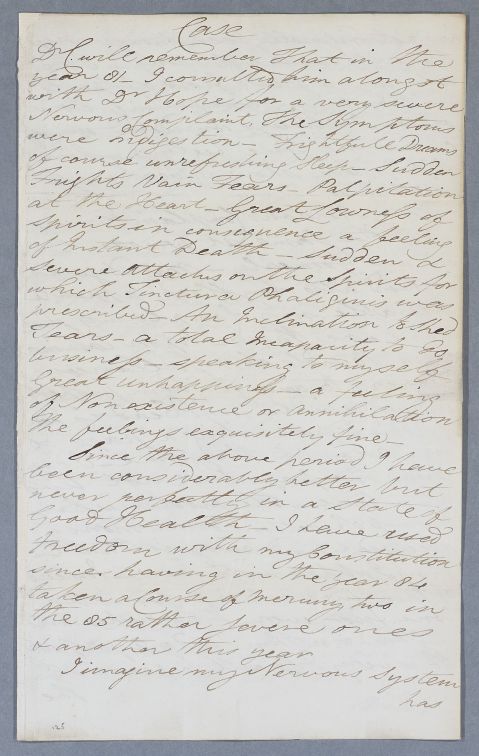 Case
Dr C. will remember that in the
year 81 - I consulted him alongst
with Dr Hope for a very severe
Nervous Complaint. The Symptoms
were Indigestion - Frightfull Dreams
of course unrefreshing Sleep - Sudden
Frights Vain Fears - Palpitation
at the Heart - Great Lowness of
spirits in consequence a feeling
of Instant Death - Sudden &
severe Attacks on the Spirits for
which Tinctura Thaliginis was
prescribed - An Inclination to Shed
Tears - a total Incapacity to Do
business - speaking to myself
Great unhappiness - a feeling
of Nonexistence or annihilation
The feelings exquisitely fine -
Since the above period I have
been considerably better but
never perfectly in a State of
Good Health - I have used
freedom with my Constitution
since having in the year 84
taken a Course of Mercury two in
the 85 rather severe ones
& another this year
I imagine my Nervous System
has